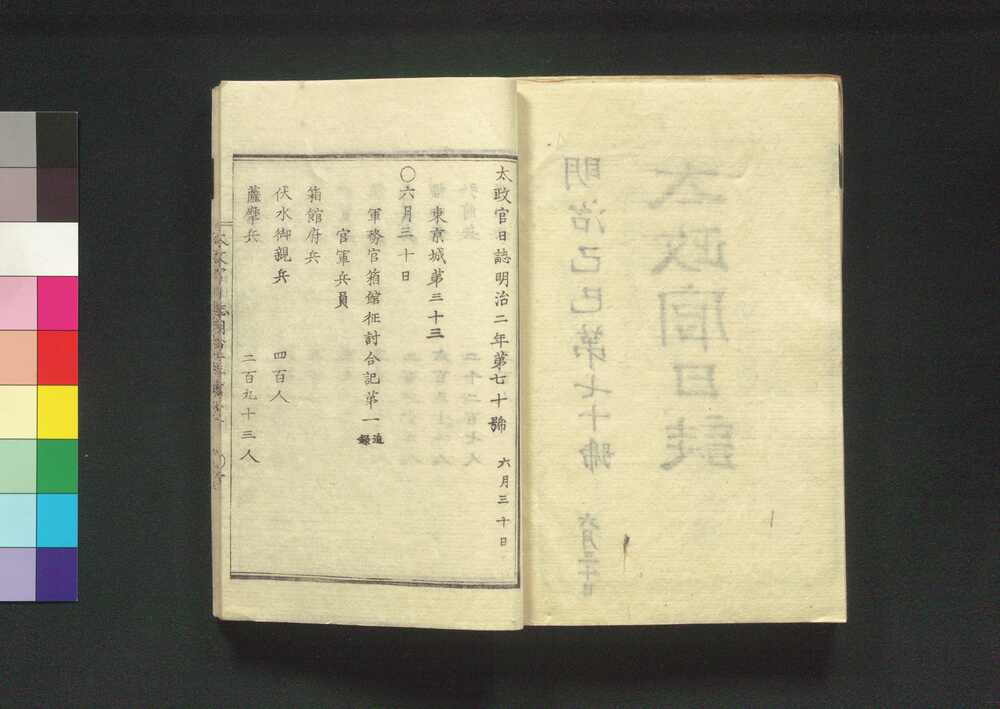 太政官日誌明治二年第七十號 六月三十日
東京城第三十三
〇六月三十日
軍務官箱館征討合記第一追録
官軍兵員
箱館府兵
伏水御親兵 四百人
薩摩兵 二百九十三人
太政官日誌
明治己巳第七十號 六月三十日